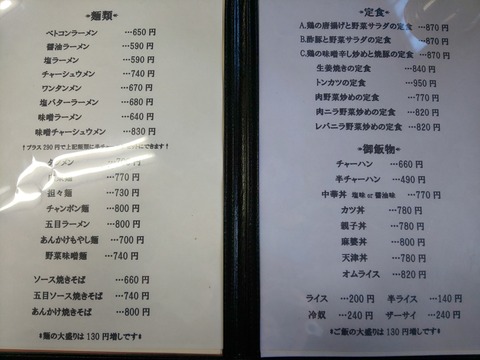 麺類
ベトコンラーメン …650円
醤油ラーメン …590円
塩ラーメン …590円
チャーシュウメン …740円
ワンタンメン …670円
塩バターラーメン …680円
味噌ラーメン …640円
味噌チャーシュウメン …830円
↑プラス290円で上記麺類に半チャーハンセットにできます↑
タンメン
…770円
担々麺 …730円
チャンポン麺 …800円
五目ラーメン …800円
あんかけもやし麺 …700円
野菜味噌麺 …740円
ソース焼きそば …660円
五目ソース焼きそば …740円
あんかけ焼きそば …800円
*麺の大盛りは130円増しです*
定食
A.鶏の唐揚げと野菜サラダの定食 …870円
B.酢豚と野菜サラダの定食 …870円
C.鶏の味噌辛し炒めと焼豚の定食 …870円
生姜焼きの定食 …840円
トンカツの定食 …950円
肉野菜炒めの定食 …770円
肉ニラ野菜炒めの定食 …820円
レバニラ野菜炒めの定食 …820円
御飯物
チャーハン …660円
半チャーハン …490円
中華丼 塩味 or 醤油味 …770円
カツ丼 …780円
親子丼 …780円
麻婆丼 …800円
天津丼 …780円
オムライス …820円
ライス …200円 半ライス …140円
冷奴 …240円 ザーサイ …240円
*ご飯の大盛りは130円増しです*